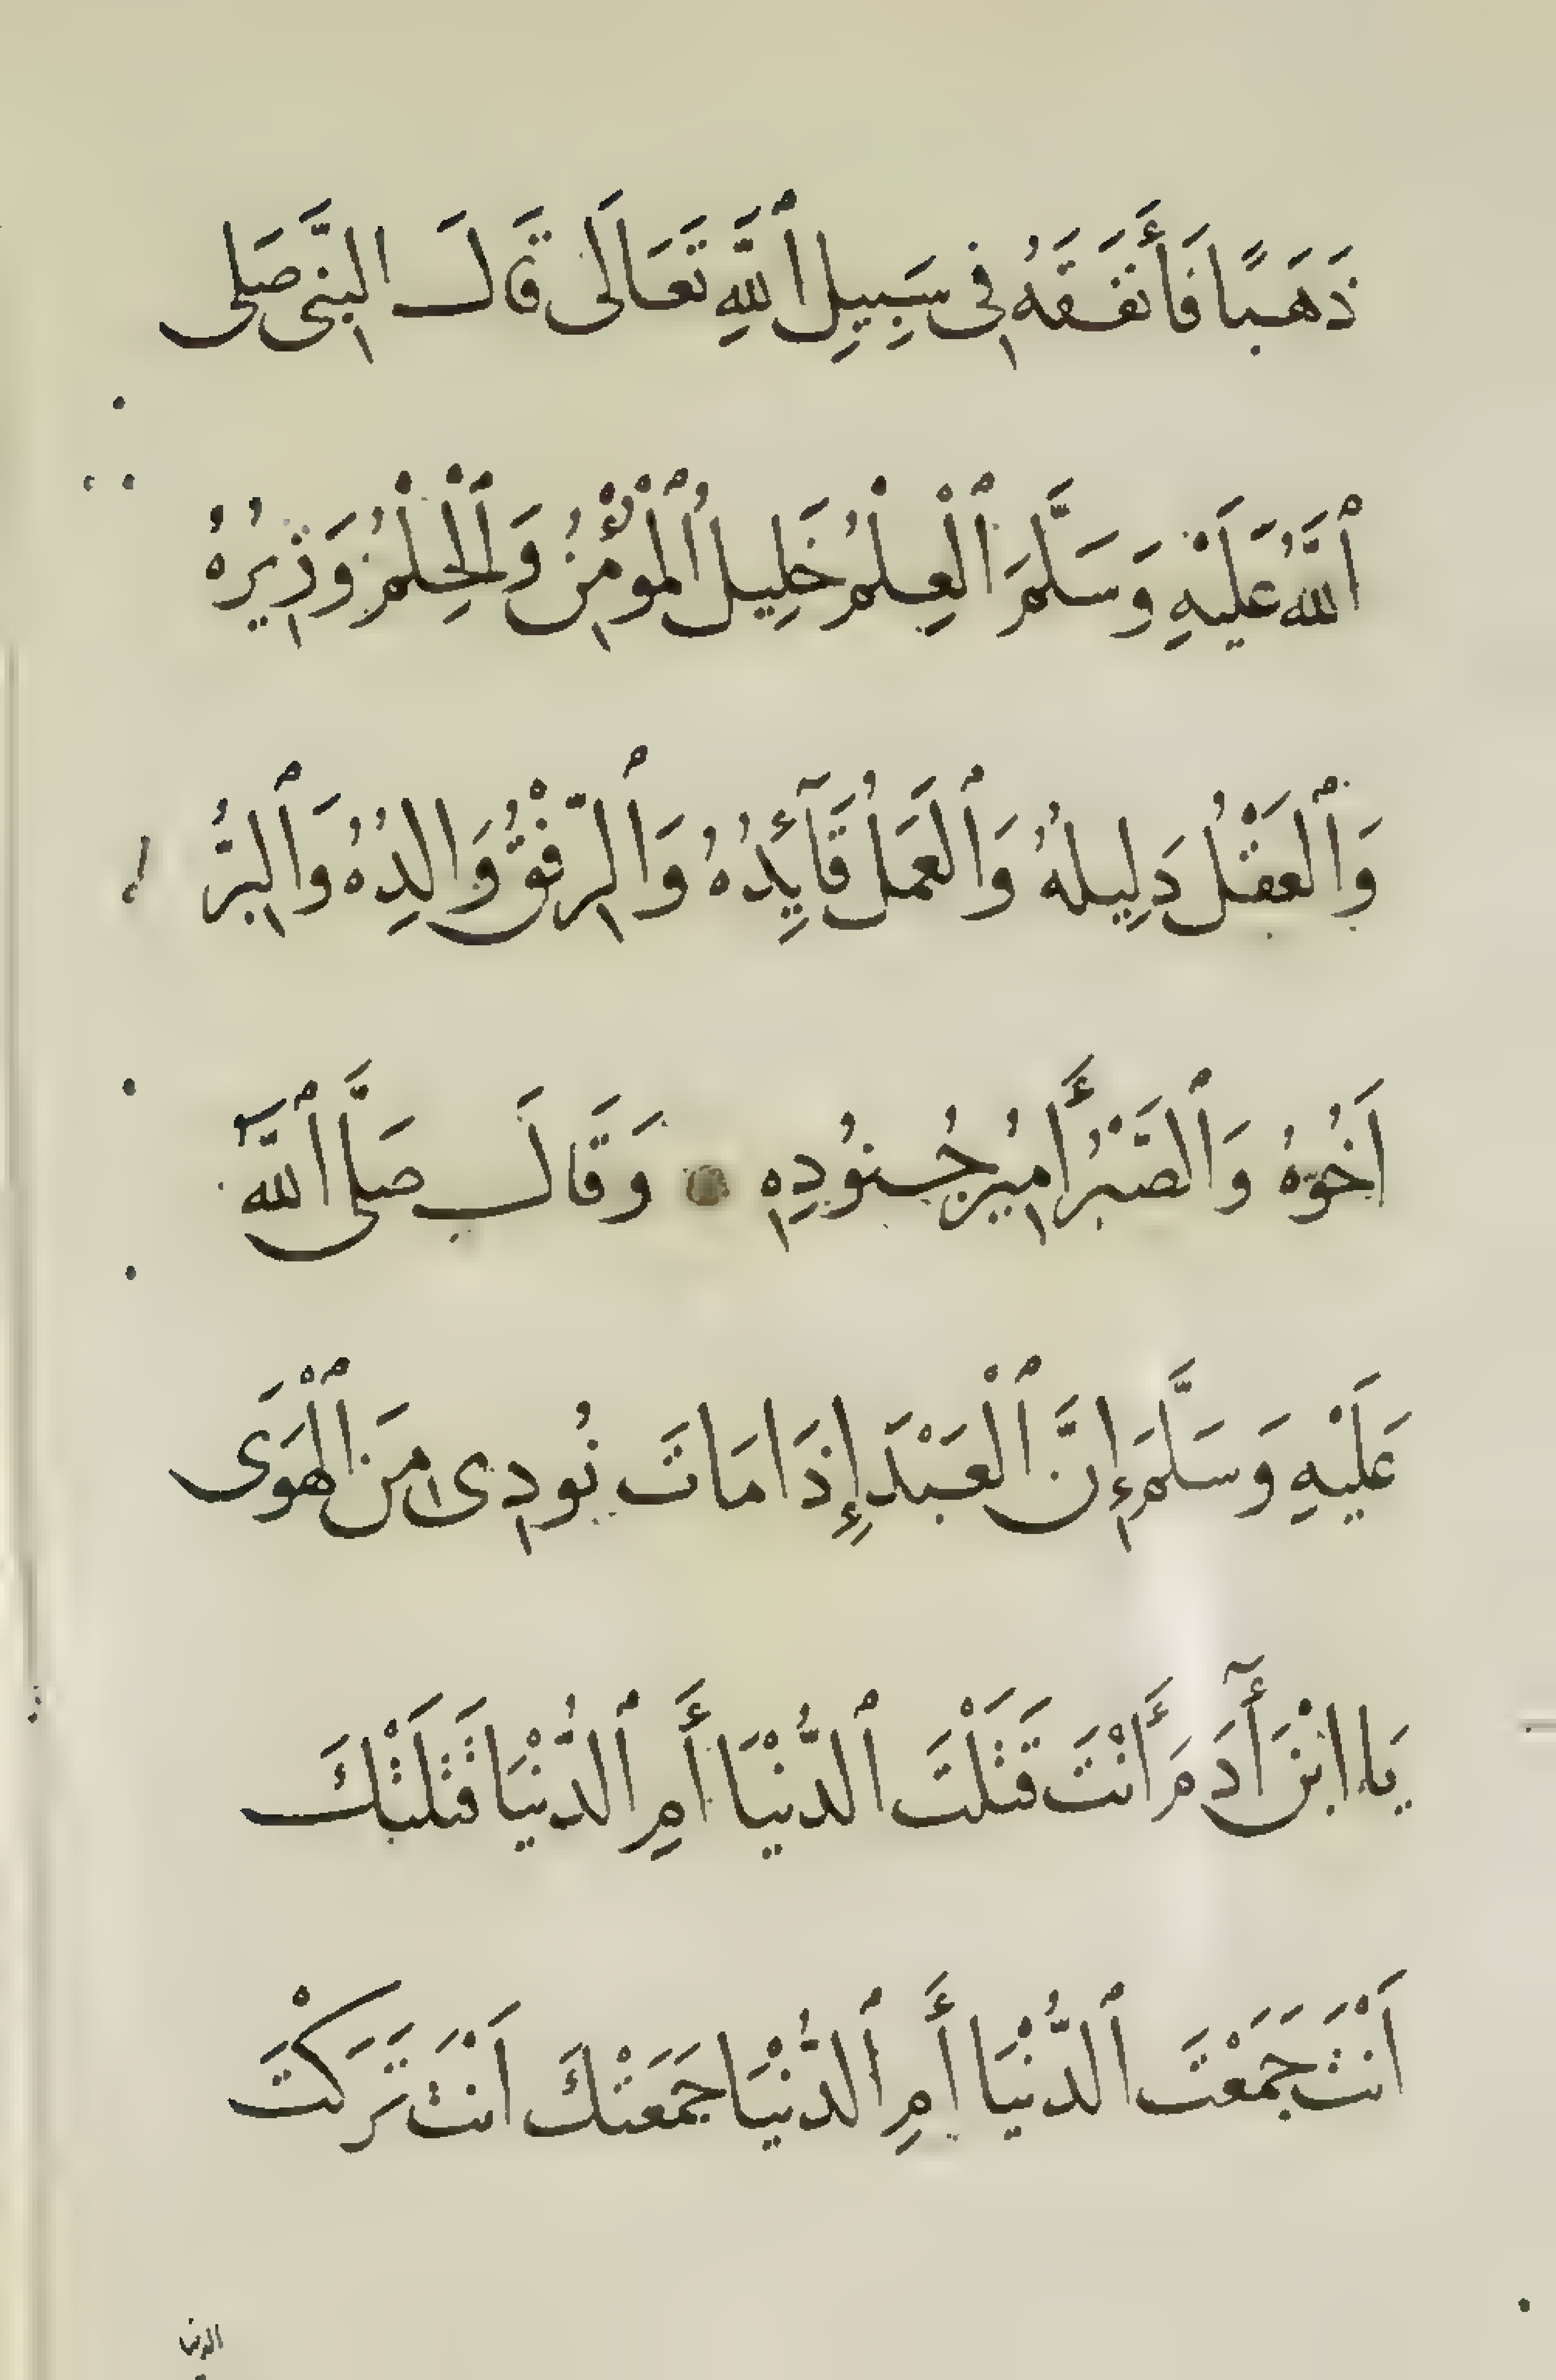 ذَهَبًا فَأَنفَقَهُ فِى سَبِيلِ ٱللَّهِ تَعَالَى قَالَ النَّبِى صَلى
ٱللَّهُ عَلَيْهِ وَسَلَّمَ ٱلْعِلْمُ خَلِيلُ ٱلْمُؤْمِنُ وَٱلْحِلْمُ وَزِيرُهُ
وَٱلعَقْلُ دَلِيلهُ وَٱلعَمَلُ قَآئِدُهُ وَٱلرِّفْقُ وَالِدُهُ وَٱلبِرُّ
اَخُوُهُ وَٱلصَّبْرُ أَمِيرُ جُنُودِهِ وَقَالَ صَلَّى ٱللَّه
عَلَيْهِ وَسَلَّمَ إِنَّ ٱلْعَبْدَ إِذَا مَاتَ نُودِى مِنَ ٱلْهَوَى
يَا ابْنَ أٓدَمَ أَنْتَ قَتَلْتَ ٱلدُّنْيَا أَمِ ٱلدُّنْيَا قَتَلَتْكَ
اَنْتَ جَمَعْتَ ٱلدُّنْيَا أَمِ ٱلدُّنْيَا جَمَعَتْكَ اَنْتَ تَرَكْتَ
الدنيا